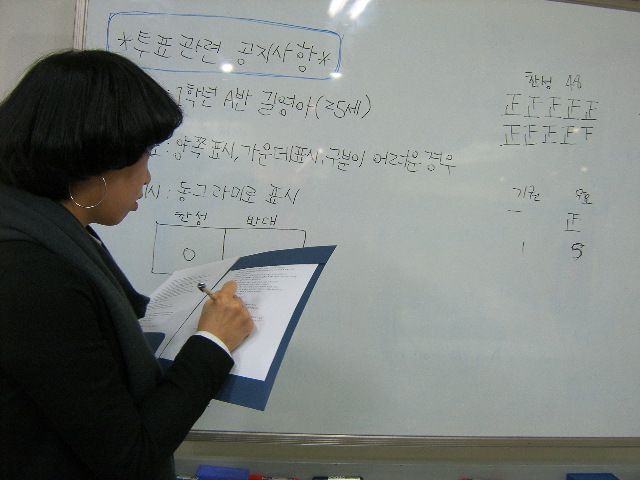 *투표 관련 공지사항*
학년 A반 길영아(35세)
: 양쪽 표시, 가운데 표시, 구분이 어려운 경우
시 : 동그라미로 표시
찬성 반대
○
찬성 48
正正正正正
正正正正下
기권 무효
一 正
1 5